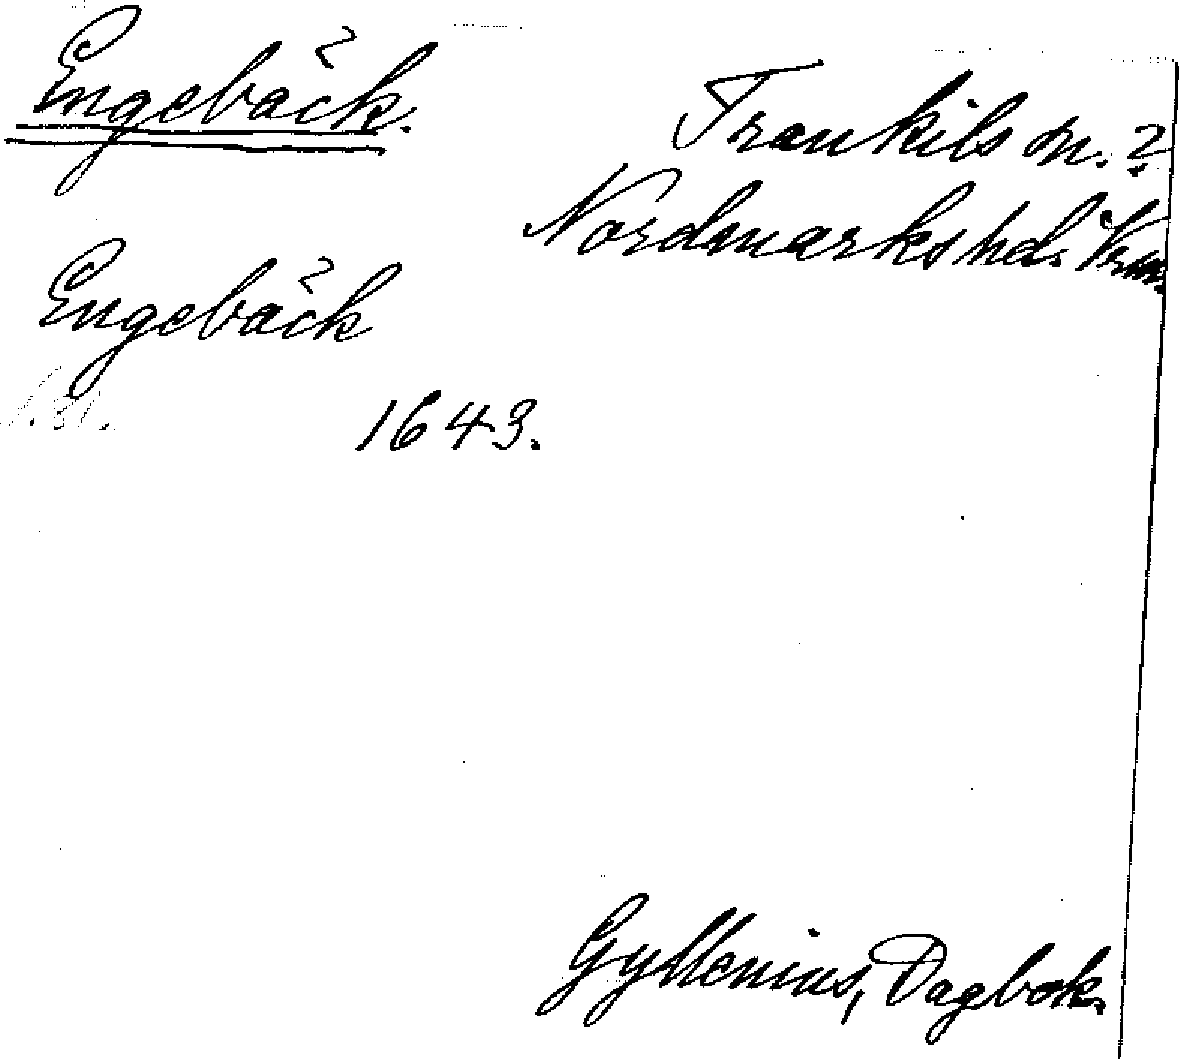 Engebäck.
Trankils sn.?
Nordmarks hd. Vrm.
Engebäck
s. 81.
1643.
Gyllenius, Dagbok.